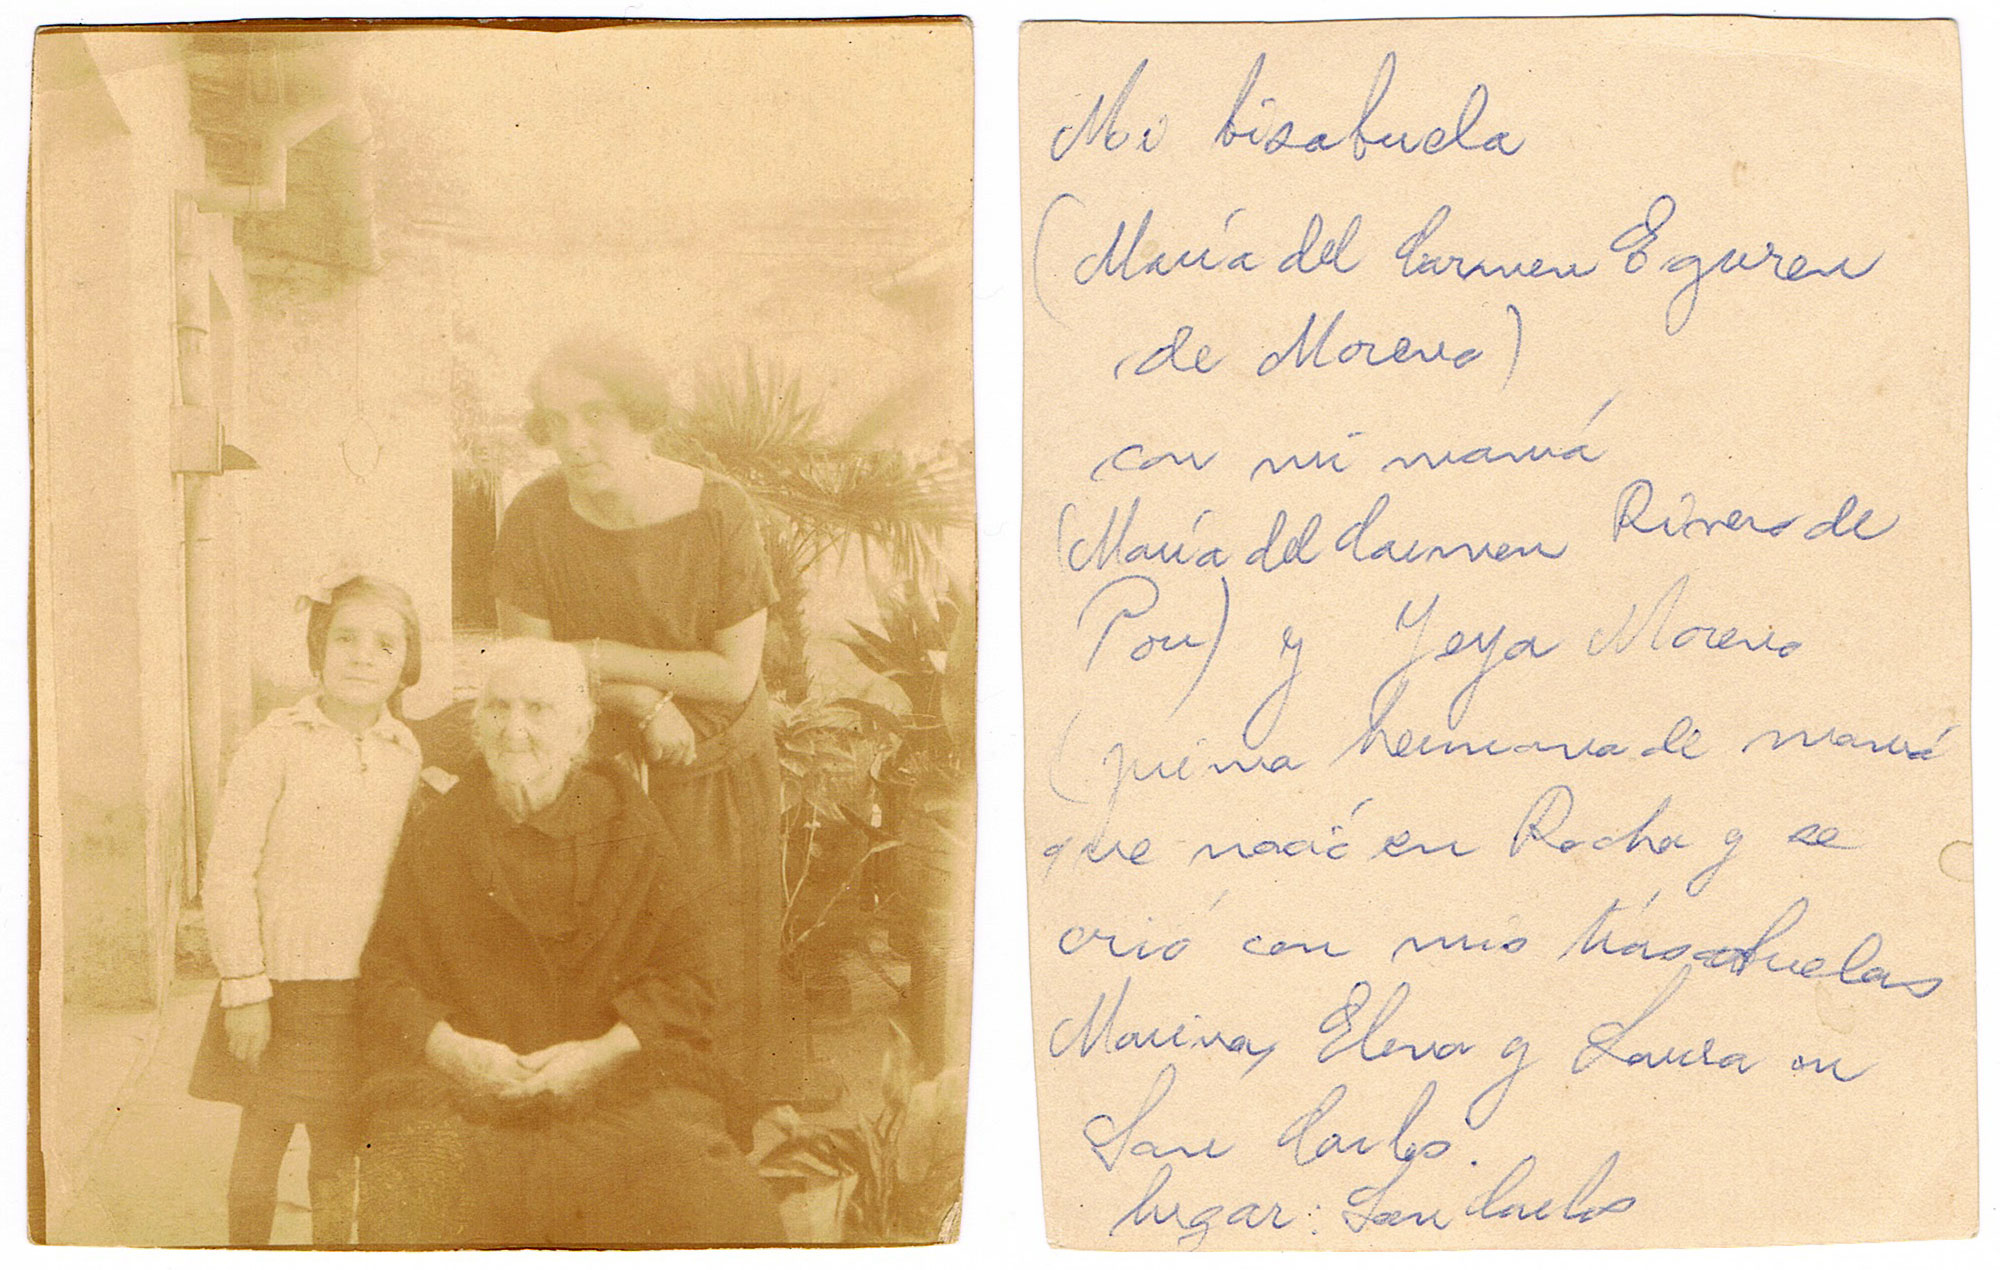 Mi bisabuela
(María del Carmen Eguren
de Moreno)
con mi mamá
(María del Carmen Rivero de
Pou) y Yeya Moreno
(prima hermana de mamá
que nació en Rocha y se
crió con mis trasabuelas
Marina, Elena y Laura en
San Carlos.
lugar: San Carlos